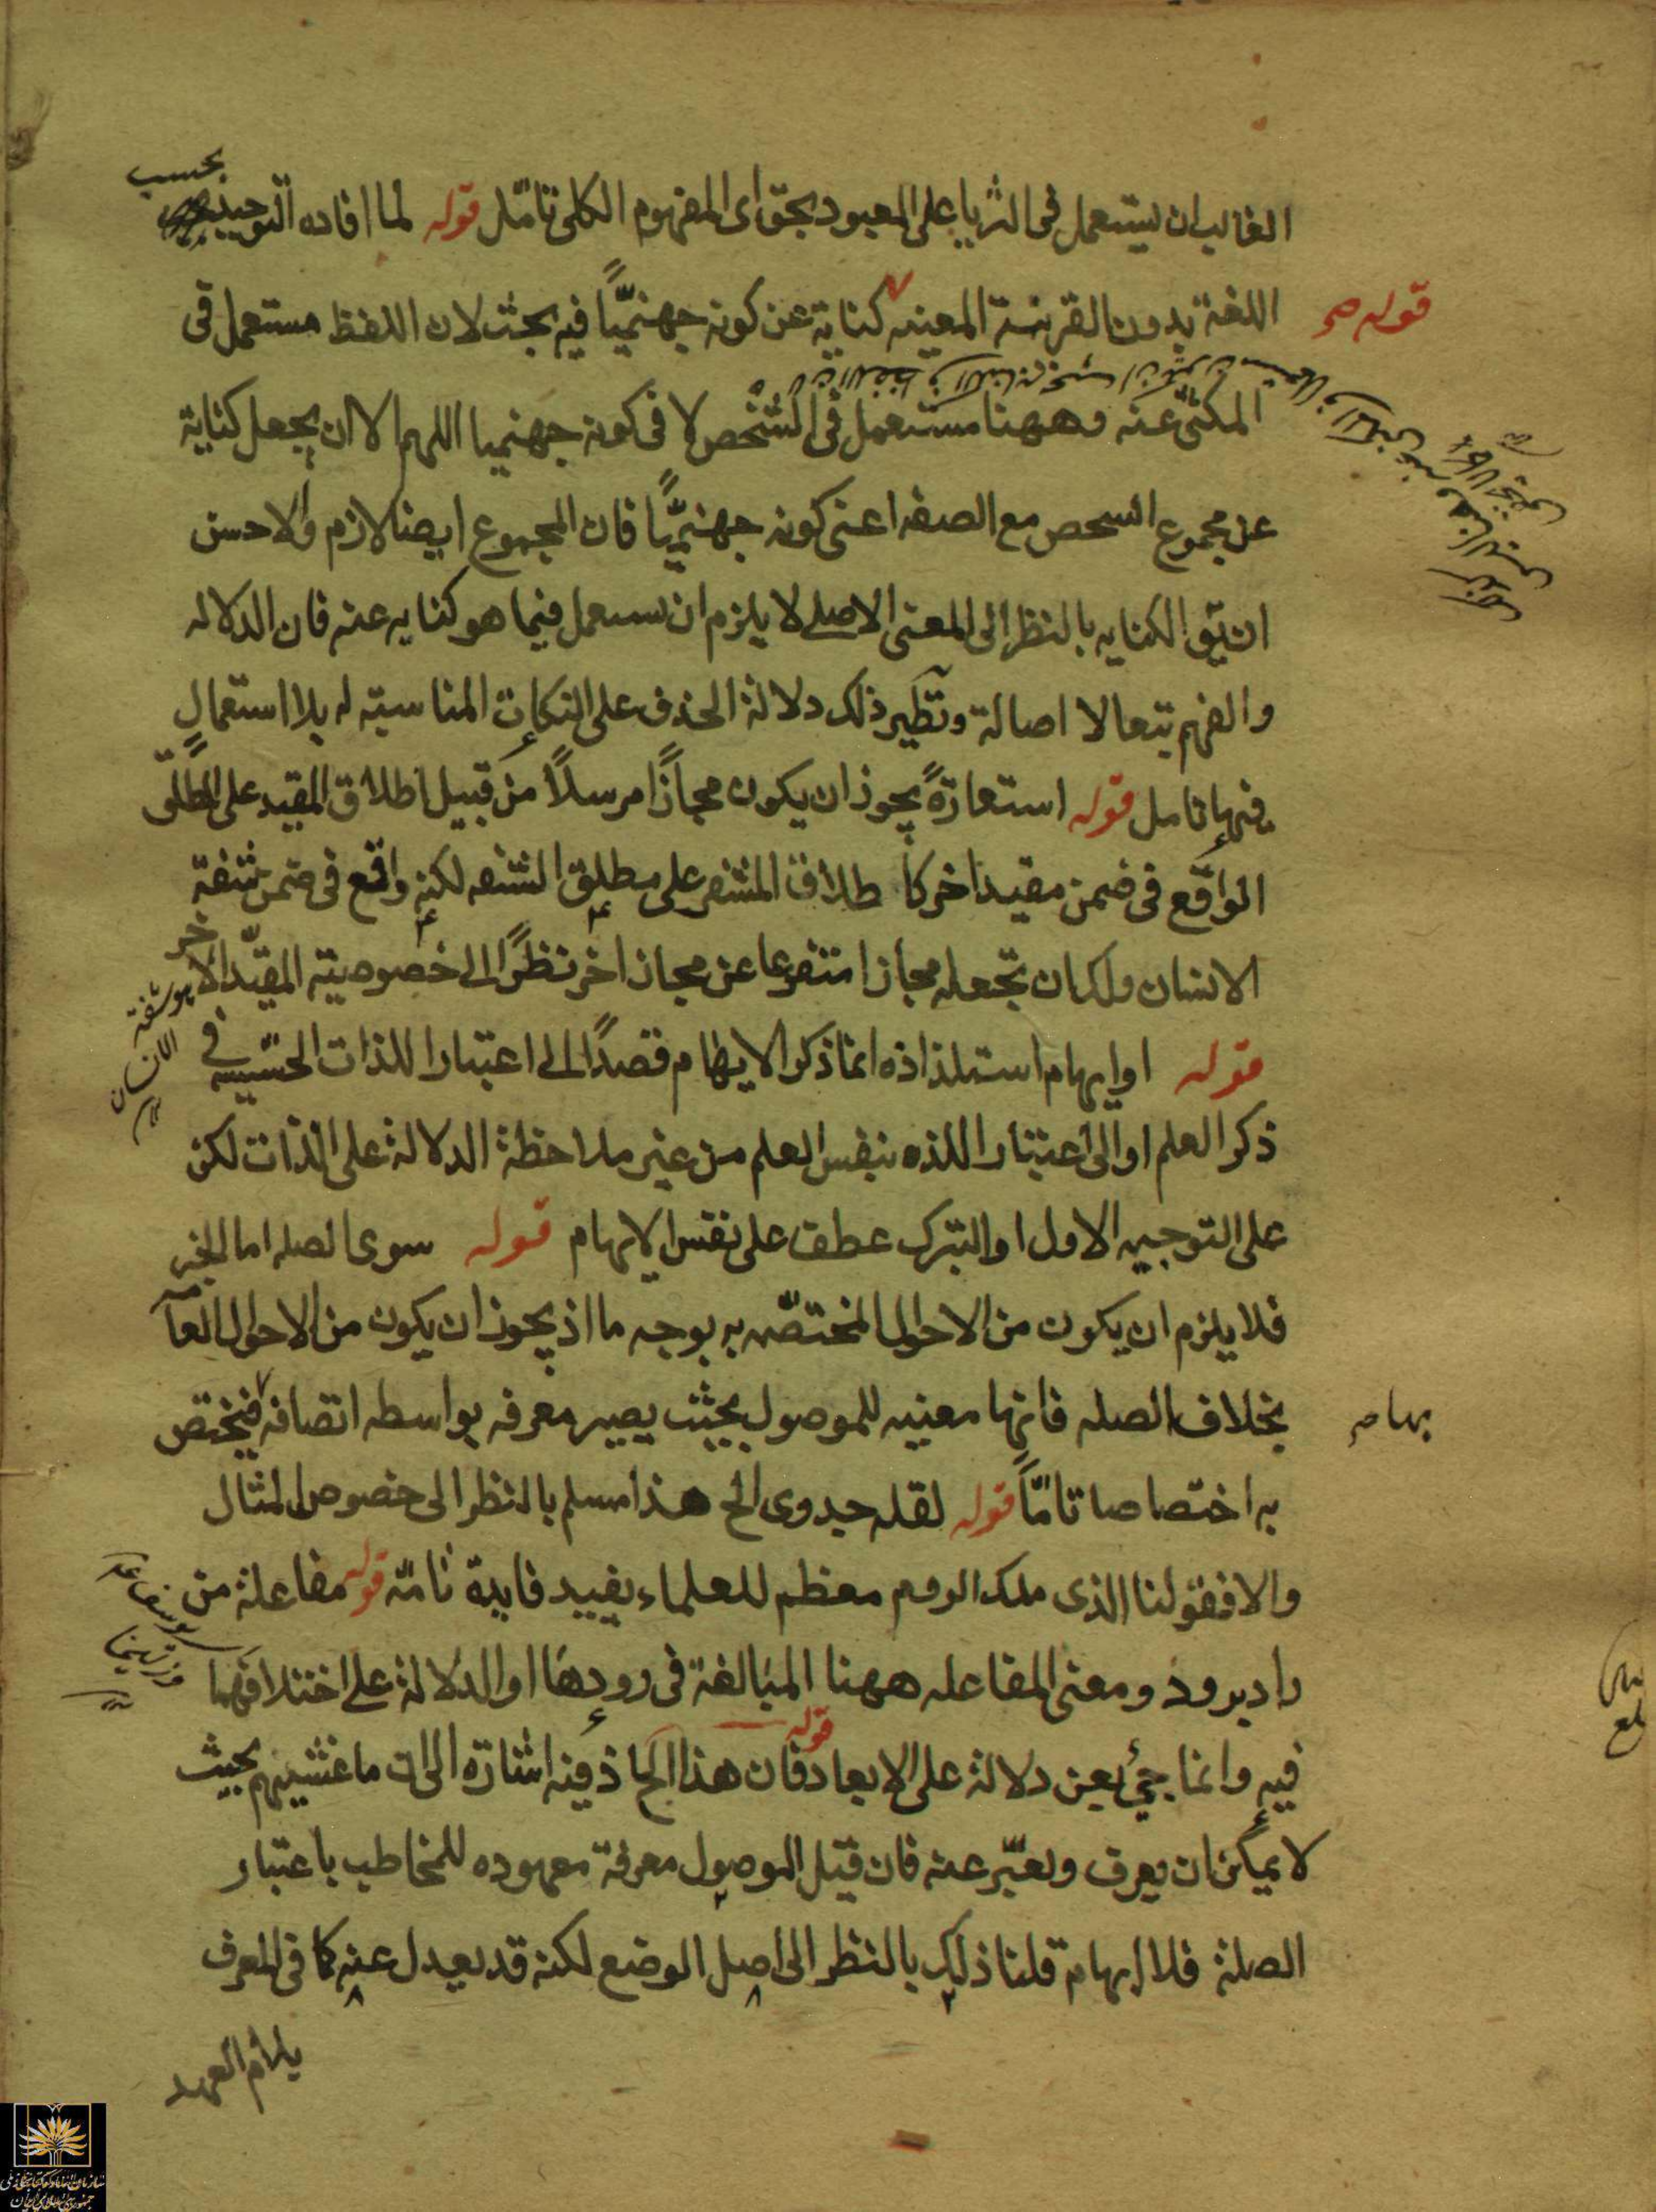 الغالب ان يستعمل فى الثريا على المعبود بحق اى المفهوم الكلى تامّل قوله لما افاده التوحيد بحسب
اللغة بدون القرينة المعينه كناية عن كونه جهنميًّا فيه بحث لان اللفظ مستعمل فى
قوله صح
المكنى عنه وههنا مستعمل فى الشخص لا فى كونه جهنميا اللهم الا ان يجعل كناية
عن مجموع الشخص مع الصفه اعنى كونه جهنميًّا فان المجموع ايضا لازم والاحسن
ان يق الكنايه بالنظر الى المعنى الاصلے لا يلزم ان يستعمل فيما هو كنايه عنه فان الدلاله
والفهم تبعا لا اصالة ونظير ذلك دلالة الحذف على النكات المناسبته له بلا استعمالٍ
فيها تامل قوله استعارةً يجوز ان يكون مجازًا مرسلاً من قبيل اطلاق المقيد على المطلق
الواقع فى ضمن مقيد اخر كا طلاق المشفر على مطلق الشفه لكنه واقع فى ضمن شفة
الانسان ولك ان تجعله مجازا متفرعا عن مجاز اخر نظرًا الى خصوصيته المقيّد الاخر
هو شفة الانسان
قوله او ايهام استلذاذه انما ذكر الايهام قصدًا الى اعتبار اللذات الحسّيه فے
ذكر العلم او الى اعتبار اللذه بنفس العلم من غير ملاحظة الدلالة على الذات لكن
على التوجيه الاول او التبرك عطف على نفس الايهام قوله سوى الصله اما الخبر
فلا يلزم ان يكون من الاحوال المختصّه به بوجه ما اذ يجوز ان يكون من الاحوال العآ
بخلاف الصله فانها معنيه للموصول بحيث يصير معرفه بواسطه اتصافه فيختص
بها صح
به اختصاصا تامّاً قوله لقله جدوى الخ هذا مسلم بالنظر الى خصوص المثال
والا فقولنا الذى ملك الروم معظم للعلماء يفيد فايدة تامّة قوله مفاعلة من
راد يرود ومعنى المفاعله ههنا المبالغة فى رودها او الدلالة على اختلافهما
فيه وانما جئ بعن دلالة على الابعاد قوله فان هذا الخ اذ فيه اشارة الى ان ما غشيهم بحيث
لا يمكن ان يعرف ويعبّر عنه فان قيل الموصول معرفة معهوده للمخاطب باعتبار
الصلة فلا ابهام قلنا ذلك بالنظر الى اصل الوضع لكنه قد يعدل عنه كما فى المعرف
بلام العهد